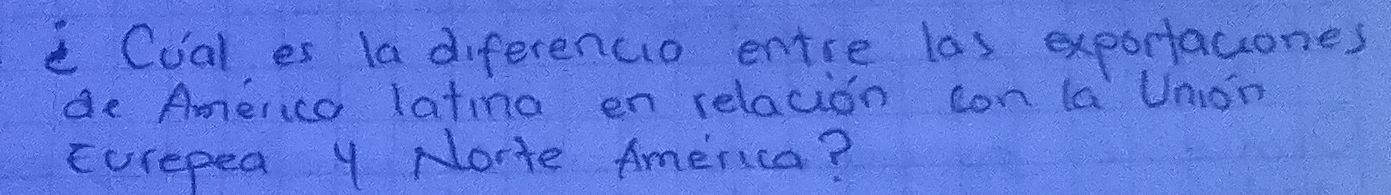 ¿ Cuál es la diferencia entre las exportaciones
de América latina en relación con la Unión
Eurepea y Norte América?